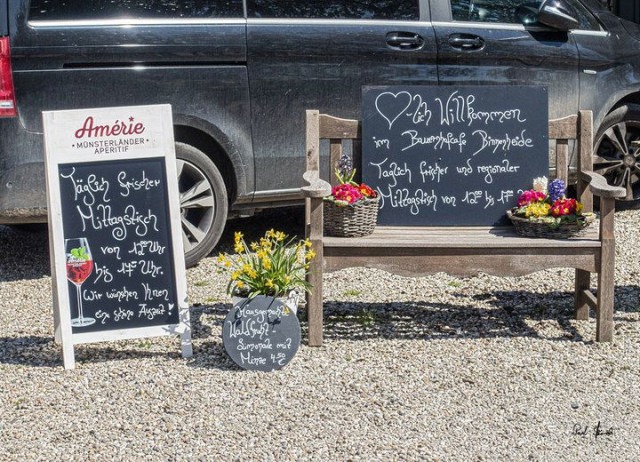 Amérie
MÜNSTERLÄNDER
APERITIF
Täglich frischer
Mittagstisch
von 12⁰⁰ Uhr
bis 17⁰⁰ Uhr.
Wir wünschen Ihnen
eine schöne Auszeit
♡lich Willkommen
im Bauernhofcafe Binnenheide
Täglich frischer und regionaler
Mittagstisch von 12⁰⁰ bis 17⁰⁰
Hausgemachte
Waldfrucht
Limonade mit
Minze 4.50